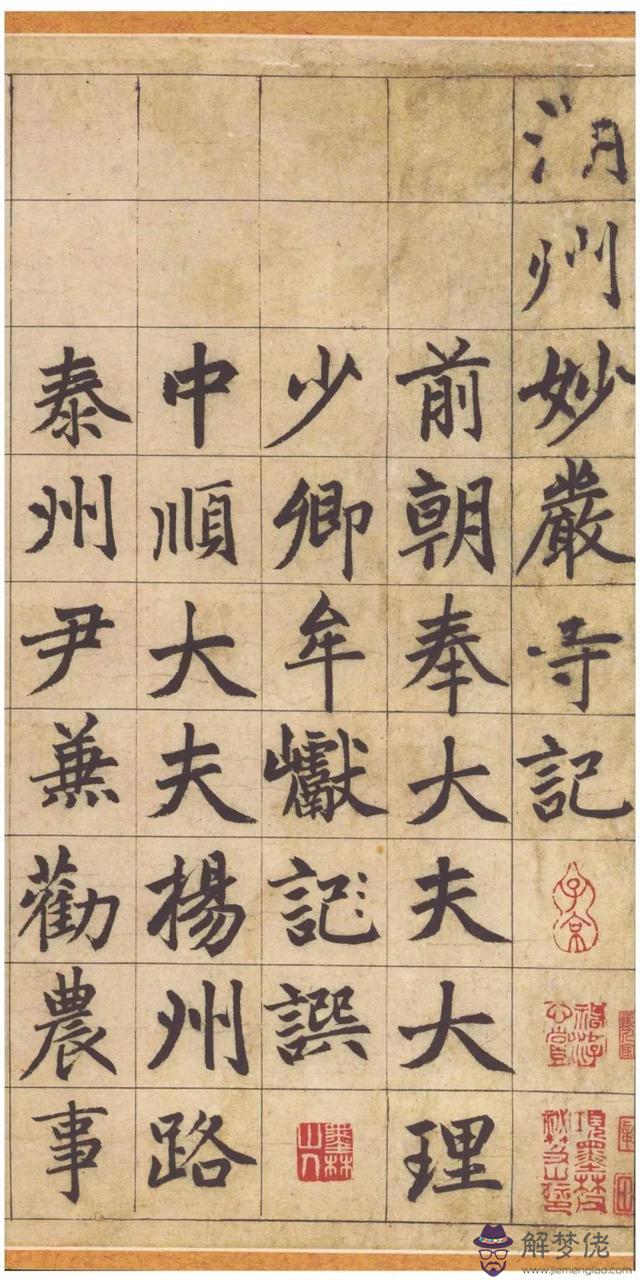 湖州妙嚴寺記
前朝奉大夫大理
少卿牟巘記譔
中順大夫揚州路
泰州尹兼勸農事
子京
項墨林
墨林山人
解梦佬
www.jiemenglao.com